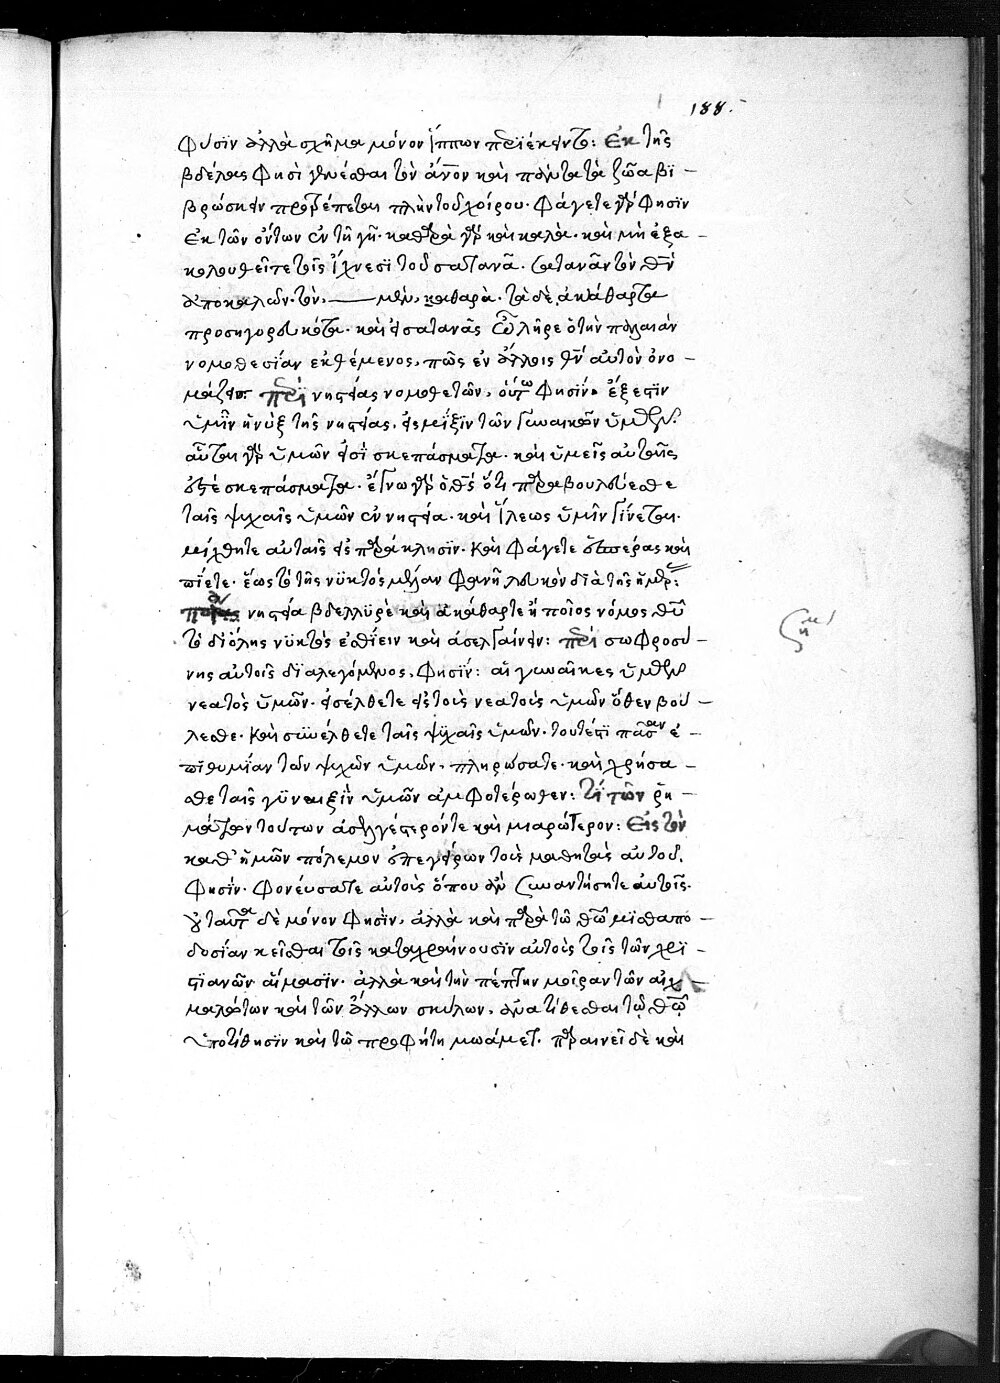 188.
φύσϊν ἀλλὰ σχῆμα μόνον ἵππων περϊέκειντο: Ἐκ τῆς
βδέλας φησὶ γενέσθαι τὸν ἄνον καὶ πάντα τὰ ζῶα βϊ -
βρώσκειν προτρέπεται πλὴν τοῦ χοίρου. Φάγετε γὰρ φησϊν
ἐκ τῶν ὄντων ἐν τῆ γῆ. καθαρὰ γὰρ καὶ καλὰ. καὶ μὴ ἐξα -
κολουθεῖτε τοῖς ἴχνεσϊ τοῦ σατανᾶ. σατανᾶν τὸν θν
ἀποκαλῶν. τὸν, —— μὲν, καθαρὰ. τὰ δὲ ἀκάθαρτα
προσηγορευκότα. καὶ εἰ σατανᾶς ὁ τὴν παλαιὰν
νομοθεσίαν ἐκθέμενος, πῶς ἐν ἄλλοις θν αὐτὸν ὀνο -
μάζει: περϊ νηστείας νομοθετῶν, οὕτω φησϊν. ἔξεστϊν
ὑμῖν ἡ νὺξ τῆς νηστείας, εἰς μεῖξϊν τῶν γυναικῶν ὑμῶν.
αὗται γὰρ ὑμῶν εἰσϊ σκεπάσματα. καὶ ὑμεῖς αὐταῖς
ἐστὲ σκεπάσματα. ἔγνω γὰρ ὁ θς ὅτι παραβουλεύεσθε
ταῖς ψυχαῖς ὑμῶν ἐν νηστεία. καὶ ἵλεως ὑμῖν γίνεται.
μίχθητε αὐταῖς εἰς παράκλησϊν. Καὶ φάγετε ἑσπέρας καὶ
πίετε. ἕως τὸ τῆς νϋκτὸς μέλαν φανῆ λευκὸν διὰ τῆς ἡμέρ:
νηστεία βδελλϋρὲ καὶ ἀκάθαρτε ἢ ποῖος νόμος θῦ
τὸ δι ὅλης νϋκτὸς ἐσθίειν καὶ ἀσελγαίνειν: περὶ σωφροσύ -
νης αὐτοῖς διαλεγόμενος, φησίν: αἱ γυναῖκες ὑμῶν
νεατὸς ὑμῶν. εἰσέλθετε εἰς τοὺς νεατοὺς ὑμῶν ὅθεν βού -
λεσθε. Καὶ συνέλθετε ταῖς ψϋχαῖς ὑμῶν. τουτέστϊ πᾶσαν ἐ -
πϊθυμίαν τῶν ψϋχῶν ὑμῶν, πληρώσατε. καὶ χρήσα -
σθε ταῖς γϋναιξὶν ὑμῶν ἀμφοτέρωθεν: τῒ τῶν ῥη -
μάτων τούτων ἀσελγέστερόν τε καὶ μιαρώτερον: Εἰς τὸν
καθ᾽ ἡμῶν πόλεμον ἐπεγείρων τοὺς μαθητὰς αὐτοῦ.
φησϊν. φονεύσατε αὐτοὺς ὅπου ἂν συναντήσητε αὐτοῖς.
οὐ ταῦτα δὲ μόνον φησϊν, ἀλλὰ καὶ παρὰ τῶ θῶ μϊσθαπο -
δοσίαν κεῖσθαι τοῖς καταχραίνουσϊν αὐτοὺς τοῖς τῶν χρϊ -
στϊανῶν αἵμασϊν. ἀλλὰ καὶ τὴν πέπτην μοῖραν τῶν αἰχ -
μαλώτων καὶ τῶν ἄλλων σκύλων, ἀνατίθεσθαι τῷ θῶ
ὑποτίθησϊν καὶ τῶ προφήτη μωάμετ. παραινεῖ δὲ καὶ